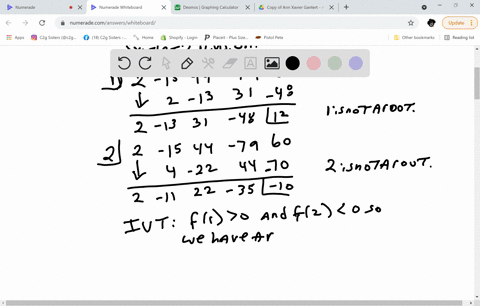 Numerade
Numerade Whiteboard
Desmos | Graphing Calculator
Copy of Ann Xavier Gantert
numerade.com/answers/whiteboard/
Update
Apps
C2g Sisters (@c2g...
(18) C2g Sisters
Home
Shopify - Login
Placeit - Plus Size...
Pistol Pete
Other bookmarks
Reading list
1 2 -15 44
↓ 2 -13 31 -48
2 -13 31 -48 12
1 is not A root.
2 2 -15 44 -79 60
↓ 4 -22 44 -70
2 -11 22 -35 -10
2 is not A root.
IVT: f(1) > 0 and f(2) < 0 so
we have Ar